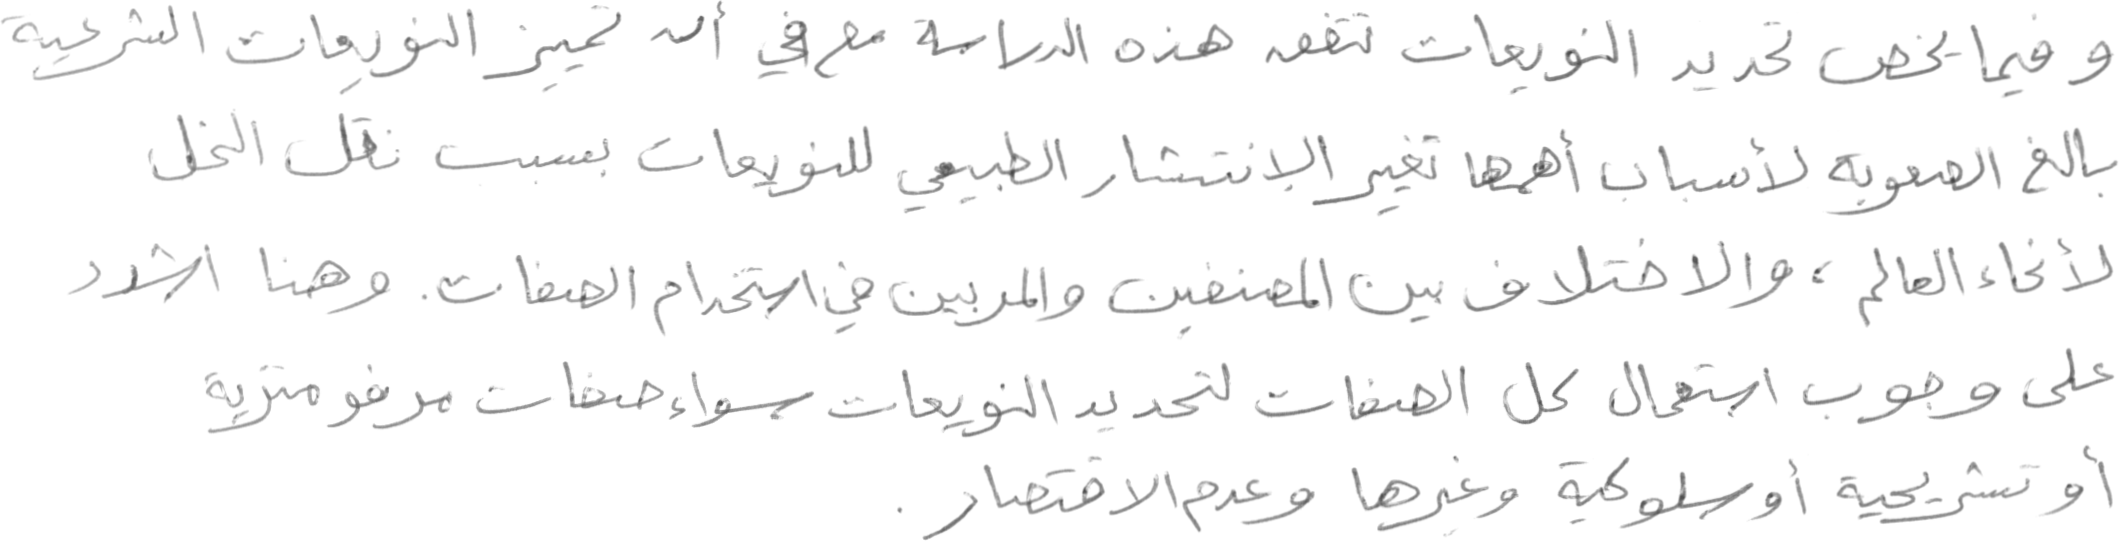 وفيما يخص تحديد النويعات تتفق هذه الدراسة مع في أن تمييز النويعات الشرعية
بالغ الصعوبة لأسباب أهمها تغير الإنتشار الطبيعي للنويعات بسبب نقل النحل
لأنحاء العالم، والاختلاف بين المصنفين والمربين في استخدام الصفات. وهنا اشدد
على وجوب استعمال كل الصفات لتحديد النويعات سواء صفات مرفومترية
أو تشريحية أو سلوكية وغيرها وعدم الاقتصار.